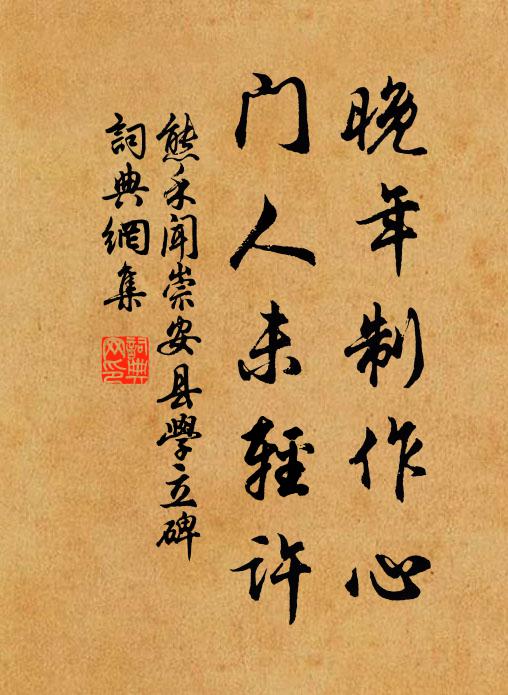 晚年制作心
门人未輕许
熊禾闻崇安县學立碑
詞典網集
詞典网印